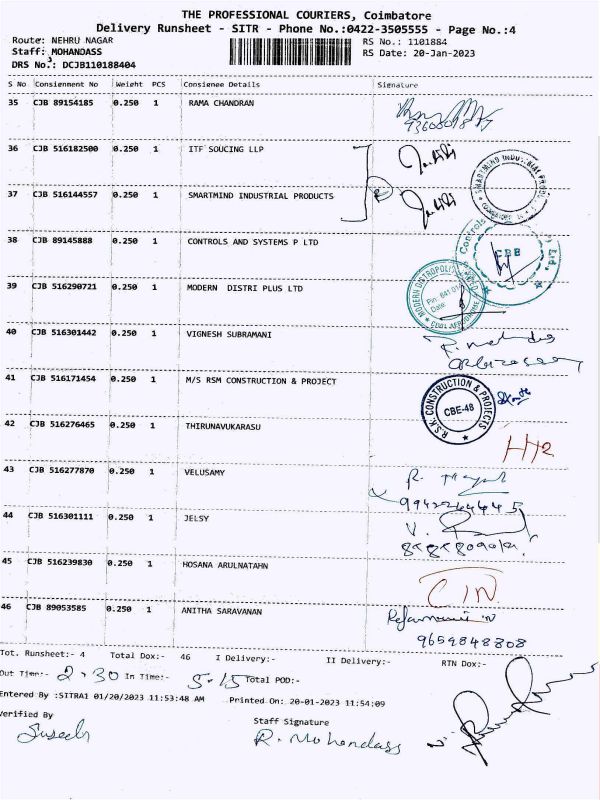 THE PROFESSIONAL COURIERS, Coimbatore
Delivery Runsheet - SITR - Phone No.:0422-3505555 - Page No.:4
Route: NEHRU NAGAR RS No.: 1101884
Staff: MOHANDASS RS Date: 20-Jan-2023
DRS No.: DCJB110188404
S No Consignment No Weight PCS Consignee Details Signature
35 CJB 89154185 0.250 1 RAMA CHANDRAN
36 CJB 516182500 0.250 1 ITF SOUCING LLP
37 CJB 516144557 0.250 1 SMARTMIND INDUSTRIAL PRODUCTS
SMARTMIND INDUSTRIAL
38 CJB 89145888 0.250 1 CONTROLS AND SYSTEMS P LTD
Controls Ltd.
39 CJB 516290721 0.250 1 MODERN DISTRI PLUS LTD
MODERN DISTROPOLIS
Pin 641 01
Date
40 CJB 516301442 0.250 1 VIGNESH SUBRAMANI
41 CJB 516171454 0.250 1 M/S RSM CONSTRUCTION & PROJECT
R.S.K. CONSTRUCTION & PROJECTS
CBE-48
42 CJB 516276465 0.250 1 THIRUNAVUKARASU
43 CJB 516277870 0.250 1 VELUSAMY
44 CJB 516301111 0.250 1 JELSY
45 CJB 516239830 0.250 1 HOSANA ARULNATAHN
46 CJB 89053585 0.250 1 ANITHA SARAVANAN
9659848808
Tot. Runsheet:- 4 Total Dox:- 46 I Delivery:- II Delivery:- RTN Dox:-
Out Time:- 2.30 In Time:- 5.15 Total POD:-
Entered By :SITRA1 01/20/2023 11:53:48 AM Printed On: 20-01-2023 11:54:09
Verified By Staff Signature
R. Mohandass